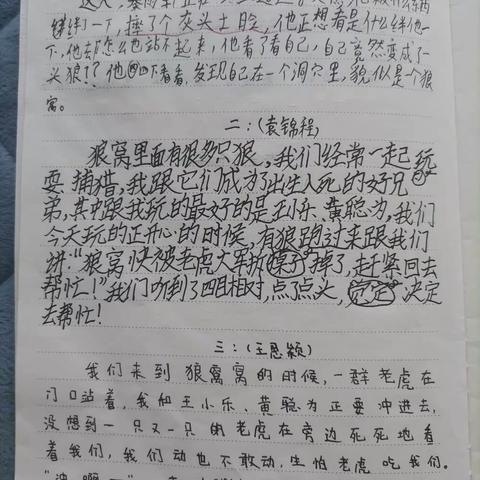 绊绊了一下，摔了个灰头土脸，他正想看是什么绊他一
下，他却怎么也站不起来，他看了看自己，自己竟然变成了一
头狼！？他四下看看，发现自己在一个洞穴里，貌似是个狼
窝。
二：(袁锦程)
狼窝里面有很多只狼，我们经常一起玩
耍 捕猎，我跟它们成为了出生入死的好兄
弟，其中跟我玩的最好的是王小乐、黄聪为，我们
今天玩的正开心的时候，有狼跑过来跟我们
讲：“狼窝快被老虎大军拆掉了，赶紧回去
帮忙！”我们听到了四目相对，点了点头，决定
去帮忙！
三：(王思颖)
我们来到狼窝窝的时候，一群老虎在
门口站着，我和王小乐、黄聪为正要冲进去，
没想到一只又一只的老虎在旁边死死地看
着我们，我们动也不敢动，生怕老虎吃我们。